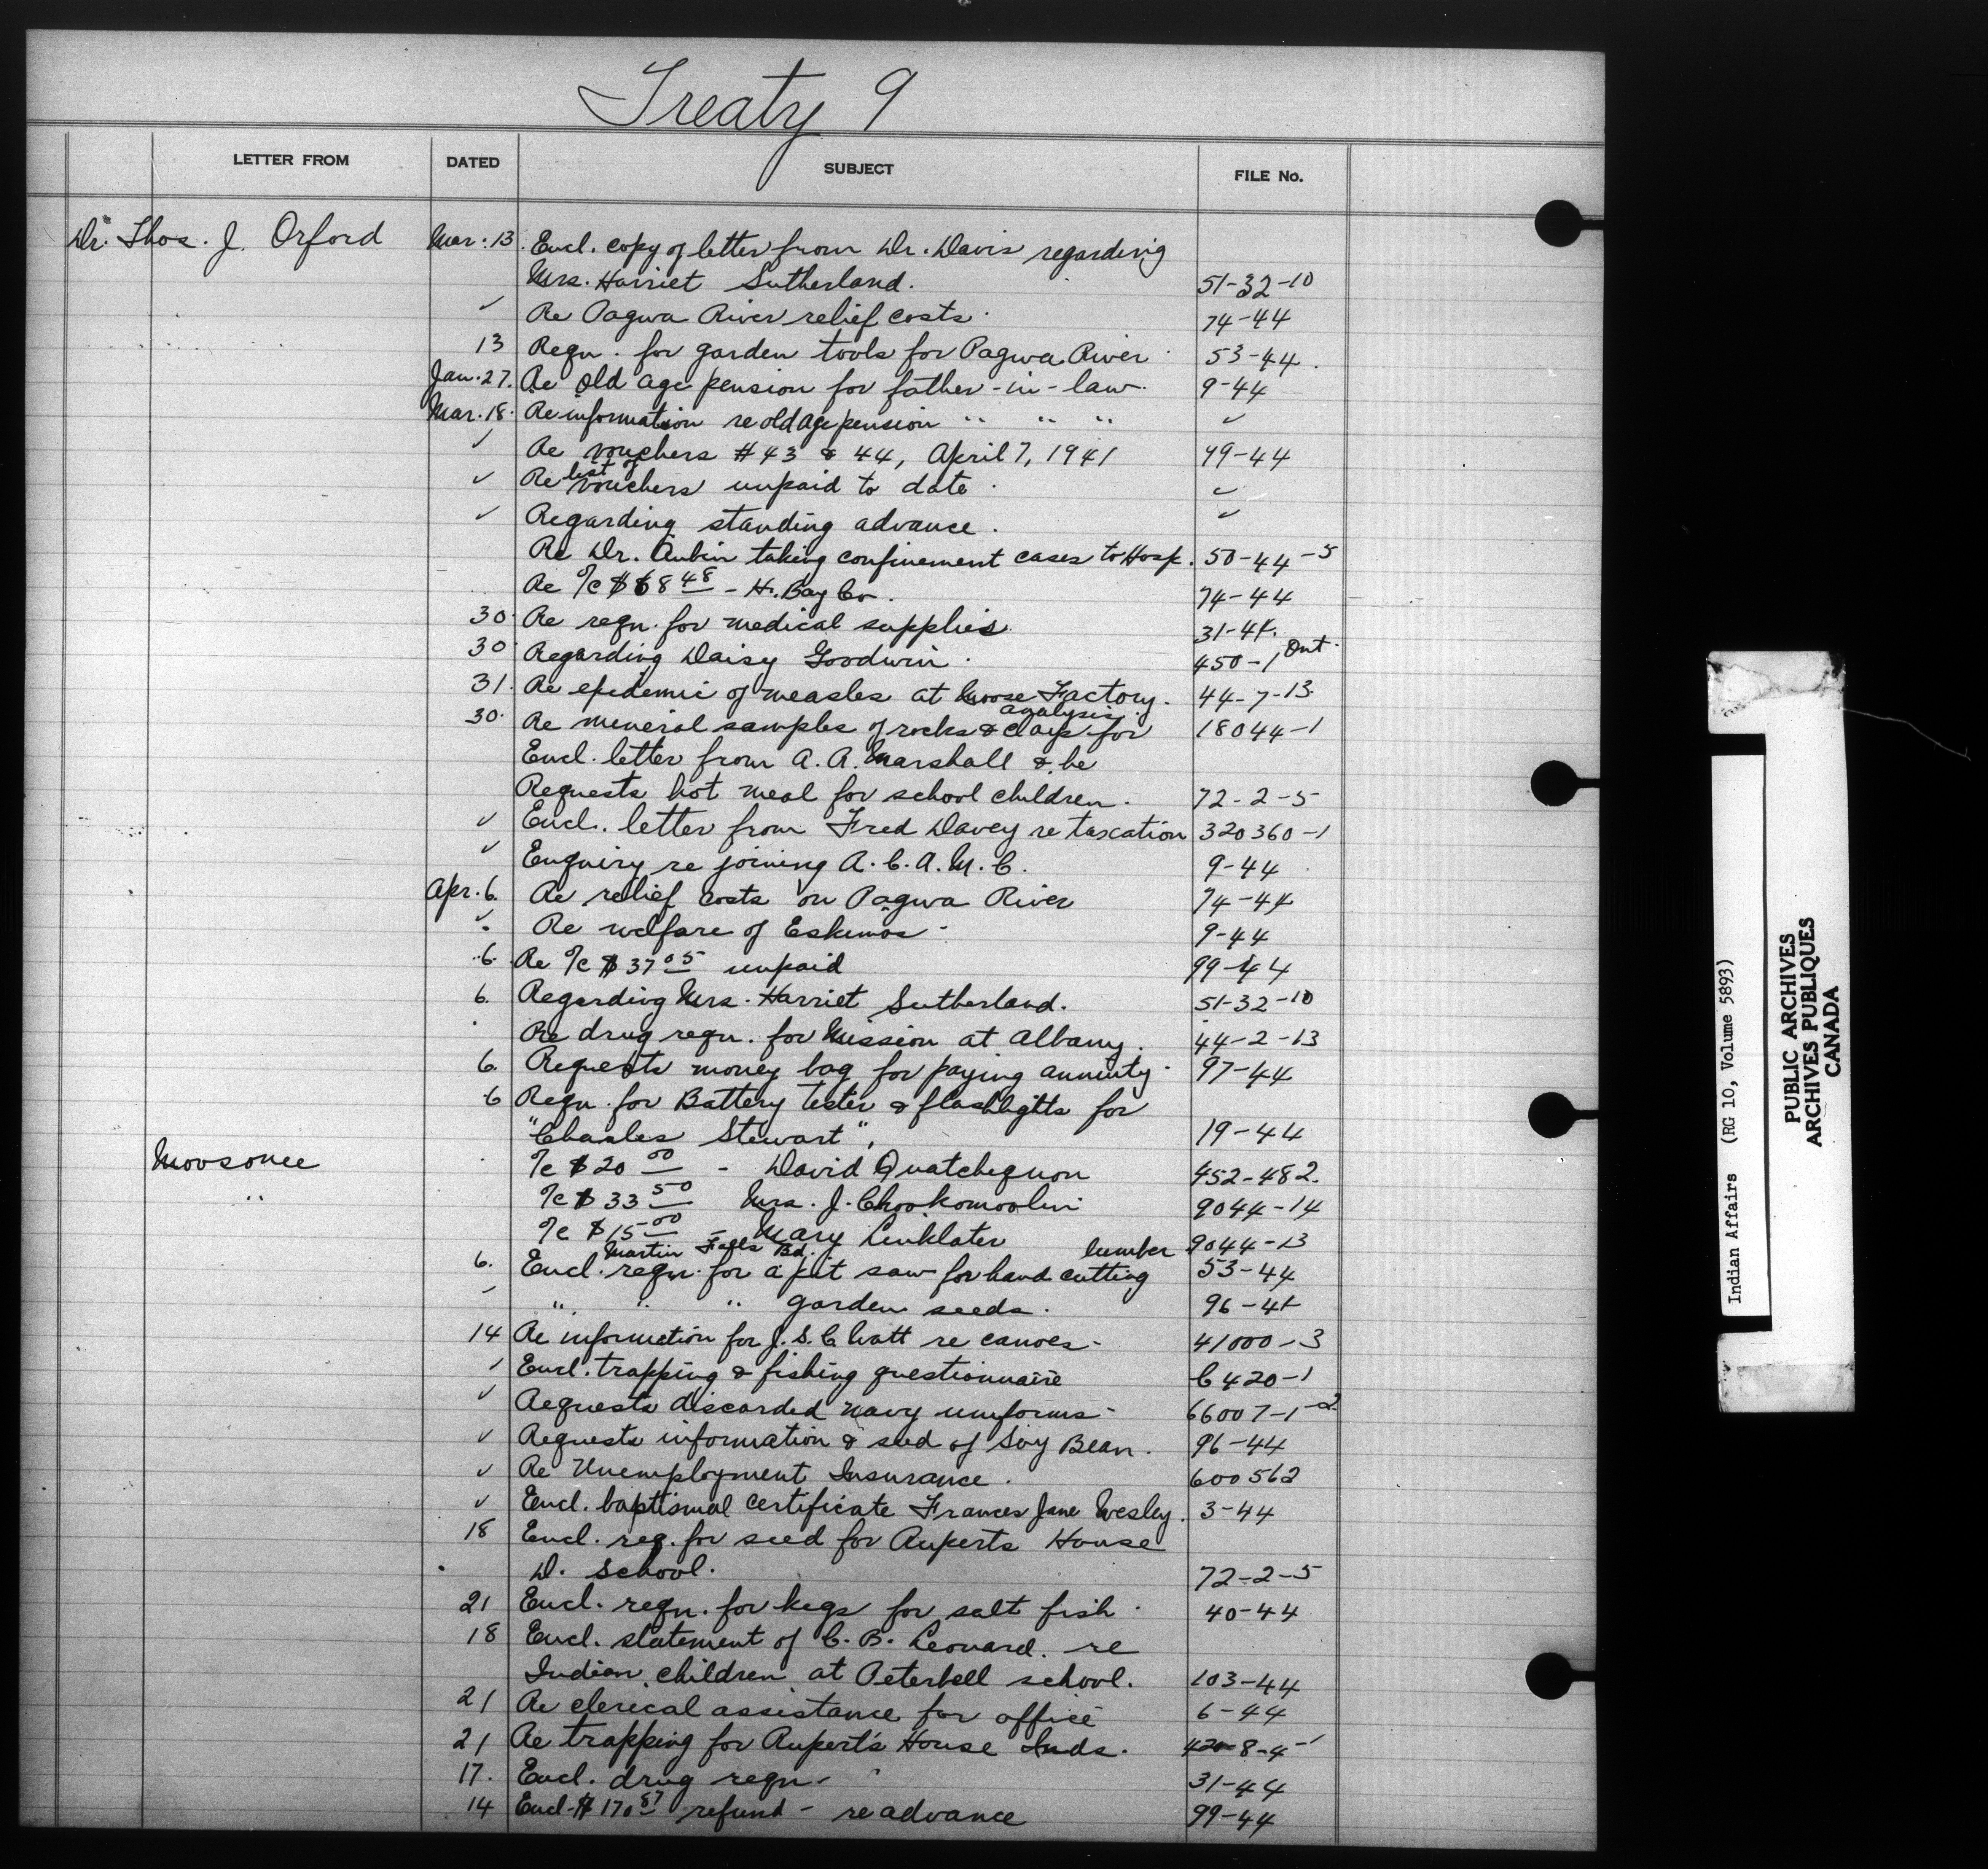 Treaty 9
LETTER FROM DATED SUBJECT FILE No.
Dr. Thos. J. Orford Mar. 13. Encl. copy of letter from Dr. Davis regarding
Mrs. Harriet Sutherland. 51-32-10
✓ Re Pagwa River relief costs. 74-44
13 Reqn. for garden tools for Pagwa River 53-44.
Jan. 27. Re old age pension for father-in-law. 9-44
Mar. 18. Re information re old age pension " " " ✓
✓ Re vouchers #43 & 44, April 7, 1941 99-44
✓ Re list of vouchers unpaid to date. ✓
✓ Regarding standing advance. ✓
Re Dr. Aubin taking confinement cases to Hosp. 50-44-5
Re %c $68 48 - H. Bay Co. 74-44
30. Re reqn. for medical supplies. 31-44.
30. Regarding Daisy Goodwin. 450-1 Ont.
31. Re epidemic of measles at Moose Factory. 44-7-13
30. Re mineral samples of rocks & clays for analysis. 18044-1
Encl. letter from A. A. Marshall & he
Requests hot meal for school children. 72-2-5
✓ Encl. letter from Fred Davey re taxation 320360-1
✓ Enquiry re joining A. C. A. M. C. 9-44
Apr. 6. Re relief costs on Pagwa River 74-44
✓ Re welfare of Eskimos - 9-44
6. Re %c $37 05 unpaid 99-44
6. Regarding Mrs. Harriet Sutherland. 51-32-10
Re drug reqn. for Mission at Albany. 44-2-13
6. Requests money bag for paying annuity. 97-44
6 Reqn. for Battery tester & flashlights for
"Charles Stewart", 19-44
Moosonee %c $20 00 - David Quatchequon 452-482.
" %c $33 50 Mrs. J. Chookomoolin 9044-14
%c $15 00 - Mary Linklater 9044-13
Martin Falls Bd. lumber
6. Encl. reqn. for a pit saw for hand cutting 53-44
" " " garden seeds. 96-44
14 Re information for J. S. C. Watt re canoes - 41000-3
✓ Encl. trapping & fishing questionnaire C420-1
✓ Requests discarded navy uniforms - 66007-1-2
✓ Requests information & seed of Soy Bean. 96-44
✓ Re Unemployment Insurance. 600562
✓ Encl. baptismal certificate Frances Jane Wesley. 3-44
18 Encl. req. for seed for Ruperts House
D. School. 72-2-5
21 Encl. reqn. for kegs for salt fish. 40-44
18 Encl. statement of C. B. Leonard. re
Indian children at Peterbell school. 103-44
21 Re clerical assistance for office 6-44
21 Re trapping for Rupert's House Inds. 420-8-4-1
17. Encl. drug reqn. 31-44
14 Encl. $170 87 refund - re advance 99-44
Indian Affairs (RG 10, Volume 5893)
PUBLIC ARCHIVES
ARCHIVES PUBLIQUES
CANADA